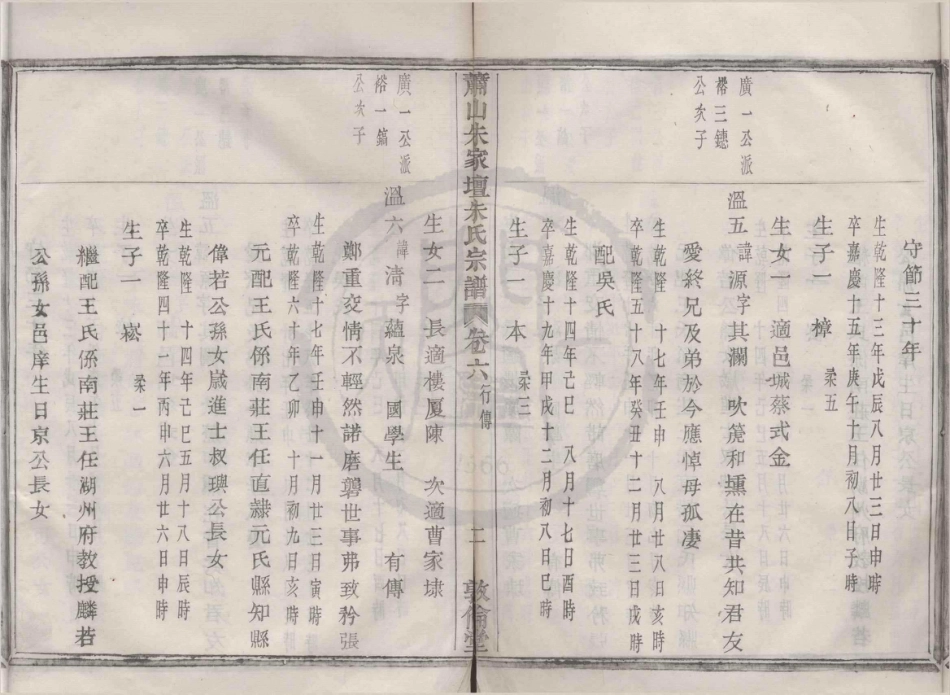 守節三十年
生乾隆十三年戊辰八月廿三日申時
卒嘉慶十五年庚午十月初八日子時
生子一 樟 梁五
生女一 適邑城蔡式金
廣一公派
裕三鏸
公次子
溫五諱源字其瀾 吹箎和壎在昔共知君友
愛終兄及弟於今應悼母孤凄
生乾隆 十七年壬申 八月廿八日亥時
卒乾隆五十八年癸丑十二月廿三日戌時
配吳氏
生乾隆十四年己巳 八月十七日酉時
卒嘉慶十九年甲戌十二月初八日巳時
生子一 本 梁三
蕭山朱家壇朱氏宗譜 卷六 行傳 二 敦倫堂
生女二 長適樓厦陳 次適曹家埭
廣一公派
裕一鎬
公次子
溫六諱清字蘊泉 國學生 有傳
鄭重交情不輕然諾磨礱世事弗致矜張
生乾隆十七年壬申十一月廿三日寅時
卒乾隆六十年乙卯 十月初九日亥時
元配王氏係南莊王任直隷元氏縣知縣
偉若公孫女歲進士叔璵公長女
生乾隆 十四年己巳五月十八日辰時
卒乾隆四十一年丙申六月廿六日申時
生子一 崧 梁一
繼配王氏係南莊王任湖州府教授麟若
公孫女邑庠生日京公長女